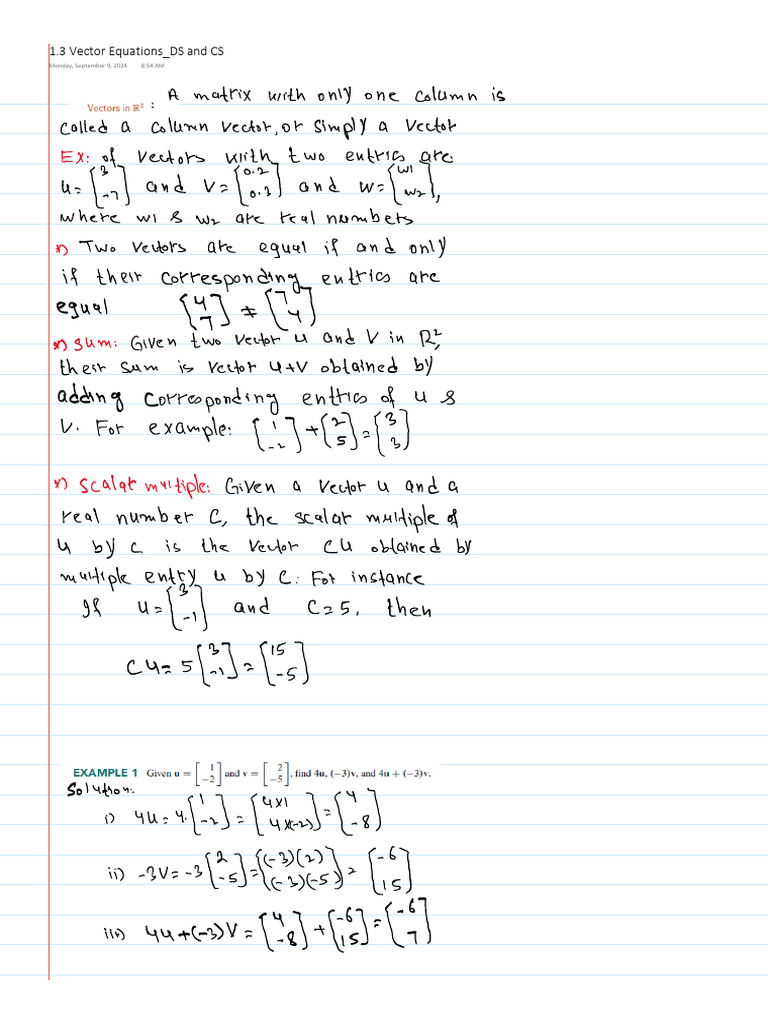 1.3 Vector Equations_DS and CS
Monday, September 9, 2024 8:54 AM
Vectors in ℝ² : A matrix with only one column is
called a column vector, or simply a vector
Ex: of vectors with two entries are
u = [3 -7] and v = [0.2 0.3] and w = [w1 w2],
where w1 & w2 are real numbers
*) Two vectors are equal if and only
if their corresponding entries are
equal [4 7] ≠ [7 4]
*) sum: Given two vector u and v in ℝ²,
their sum is vector u+v obtained by
adding corresponding entries of u &
v. For example: [1 -2] + [2 5] = [3 3]
*) scalar multiple: Given a vector u and a
real number c, the scalar multiple of
u by c is the vector cu obtained by
multiple entry u by c. For instance
If u = [3 -1] and c = 5, then
cu = 5 [3 -1] = [15 -5]
EXAMPLE 1 Given u = [1 -2] and v = [2 -5], find 4u, (−3)v, and 4u + (−3)v.
Solution:
i) 4u = 4. [1 -2] = [4x1 4x(-2)] = [4 -8]
ii) -3v = -3 [2 -5] = [(-3)(2) (-3)(-5)] = [-6 15]
iii) 4u+(-3)v = [4 -8] + [-6 15] = [-6 7]